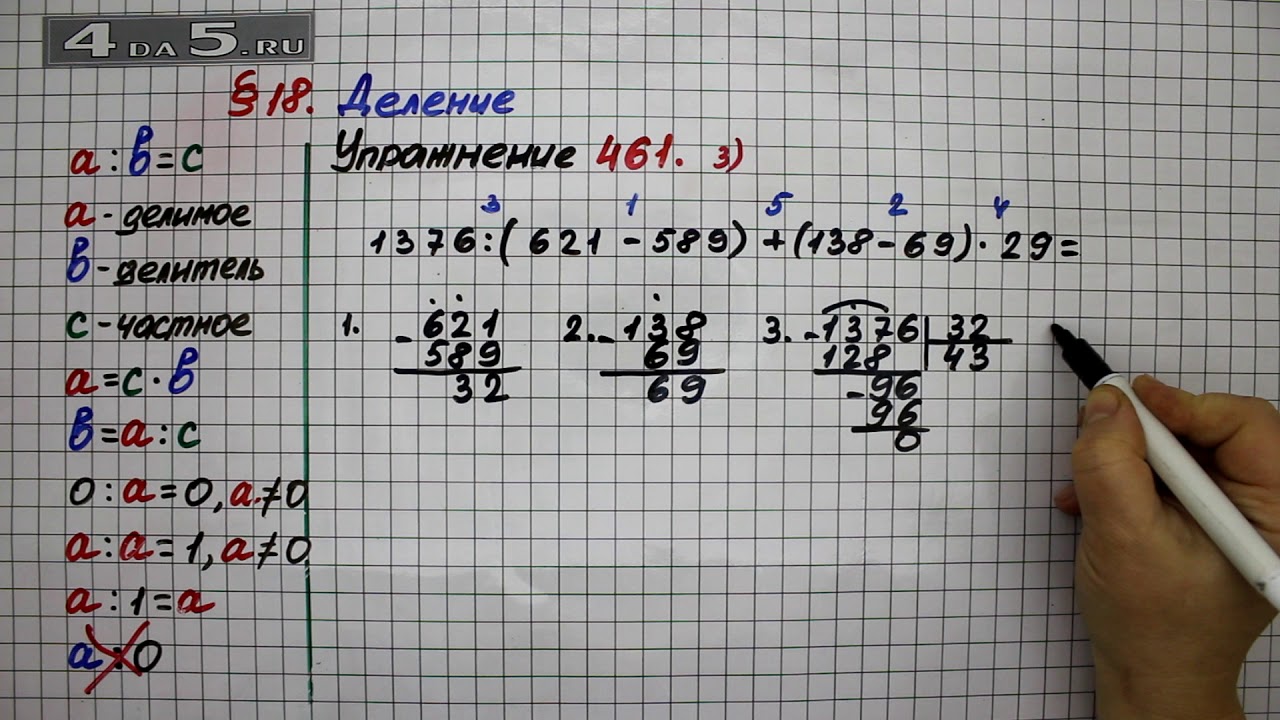 4DA5.RU
§18. Деление
Упражнение 461. 3)
a : в = c
a - делимое
в - делитель
c - частное
a = c · в
в = a : c
0 : a = 0, a ≠ 0
a : a = 1, a ≠ 0
a : 1 = a
a : 0
3 1 5 2 4
1376:(621 - 589) + (138 - 69) · 29 =
1. - 621
589
32
2. - 138
69
69
3. - 1376 32
128 43
- 96
96
0